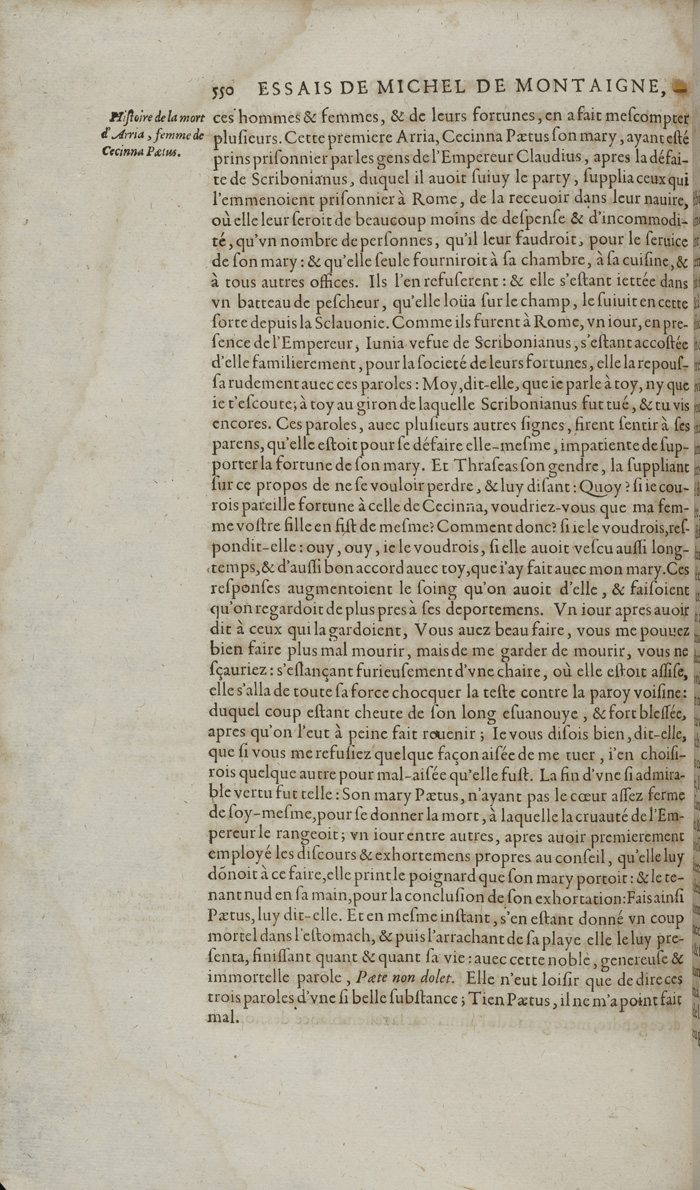 550 ESSAIS DE MICHEL DE MONTAIGNE,
Hiſtoire de la mort
d'Arria, femme de
Cecinna Pætus.
ces hommes & femmes, & de leurs fortunes, en a fait meſcompter
pluſieurs. Cette premiere Arria, Cecinna Pætus ſon mary, ayant eſté
prins priſonnier par les gens de l'Empereur Claudius, apres la défai-
te de Scribonianus, duquel il auoit ſuiuy le party, ſupplia ceux qui
l'emmenoient priſonnier à Rome, de la receuoir dans leur nauire,
où elle leur ſeroit de beaucoup moins de deſpenſe & d'incommodi-
té, qu'vn nombre de perſonnes, qu'il leur faudroit, pour le ſeruice
de ſon mary : & qu'elle ſeule fourniroit à ſa chambre, à ſa cuiſine, &
à tous autres offices. Ils l'en refuſerent : & elle s'eſtant iettée dans
vn batteau de peſcheur, qu'elle loüa ſur le champ, le ſuiuit en cette
ſorte depuis la Sclauonie. Comme ils furent à Rome, vn iour, en pre-
ſence de l'Empereur, Iunia vefue de Scribonianus, s'eſtant accoſtée
d'elle familierement, pour la ſocieté de leurs fortunes, elle la repouſ-
ſa rudement auec ces paroles : Moy, dit-elle, que ie parle à toy, ny que
ie t'eſcoute; à toy au giron de laquelle Scribonianus fut tué, & tu vis
encores. Ces paroles, auec pluſieurs autres ſignes, firent ſentir à ſes
parens, qu'elle eſtoit pour ſe défaire elle-meſme, impatiente de ſup-
porter la fortune de ſon mary. Et Thraſeas ſon gendre, la ſuppliant
ſur ce propos de ne ſe vouloir perdre, & luy diſant : Quoy ? ſi ie cou-
rois pareille fortune à celle de Cecinna, voudriez-vous que ma fem-
me voſtre fille en fiſt de meſme? Comment donc? ſi ie le voudrois, reſ-
pondit-elle : ouy, ouy, ie le voudrois, ſi elle auoit veſcu auſſi long-
temps, & d'auſſi bon accord auec toy, que i'ay fait auec mon mary. Ces
reſponſes augmentoient le ſoing qu'on auoit d'elle, & faiſoient
qu'on regardoit de plus pres à ſes deportemens. Vn iour apres auoir
dit à ceux qui la gardoient, Vous auez beau faire, vous me pouuez
bien faire plus mal mourir, mais de me garder de mourir, vous ne
ſçauriez : s'eſlançant furieuſement d'vne chaire, où elle eſtoit aſſiſe,
elle s'alla de toute ſa force chocquer la teſte contre la paroy voiſine :
duquel coup eſtant cheute de ſon long eſuanouye, & fort bleſſée,
apres qu'on l'eut à peine fait reuenir ; Ie vous diſois bien, dit-elle,
que ſi vous me refuſiez quelque façon aiſée de me tuer, i'en choiſi-
rois quelque autre pour mal-aiſée qu'elle fuſt. La fin d'vne ſi admira-
ble vertu fut telle : Son mary Pætus, n'ayant pas le cœur aſſez ferme
de ſoy-meſme, pour ſe donner la mort, à laquelle la cruauté de l'Em-
pereur le rangeoit ; vn iour entre autres, apres auoir premierement
employé les diſcours & exhortemens propres au conſeil, qu'elle luy
dõnoit à ce faire, elle print le poignard que ſon mary portoit : & le te-
nant nud en ſa main, pour la concluſion de ſon exhortation: Fais ainſi
Pætus, luy dit-elle. Et en meſme inſtant, s'en eſtant donné vn coup
mortel dans l'eſtomach, & puis l'arrachant de ſa playe elle le luy pre-
ſenta, finiſſant quant & quant ſa vie : auec cette noble, genereuſe &
immortelle parole, Pæte non dolet. Elle n'eut loiſir que de dire ces
trois paroles d'vne ſi belle ſubſtance ; Tien Pætus, il ne m'a point fait
mal.